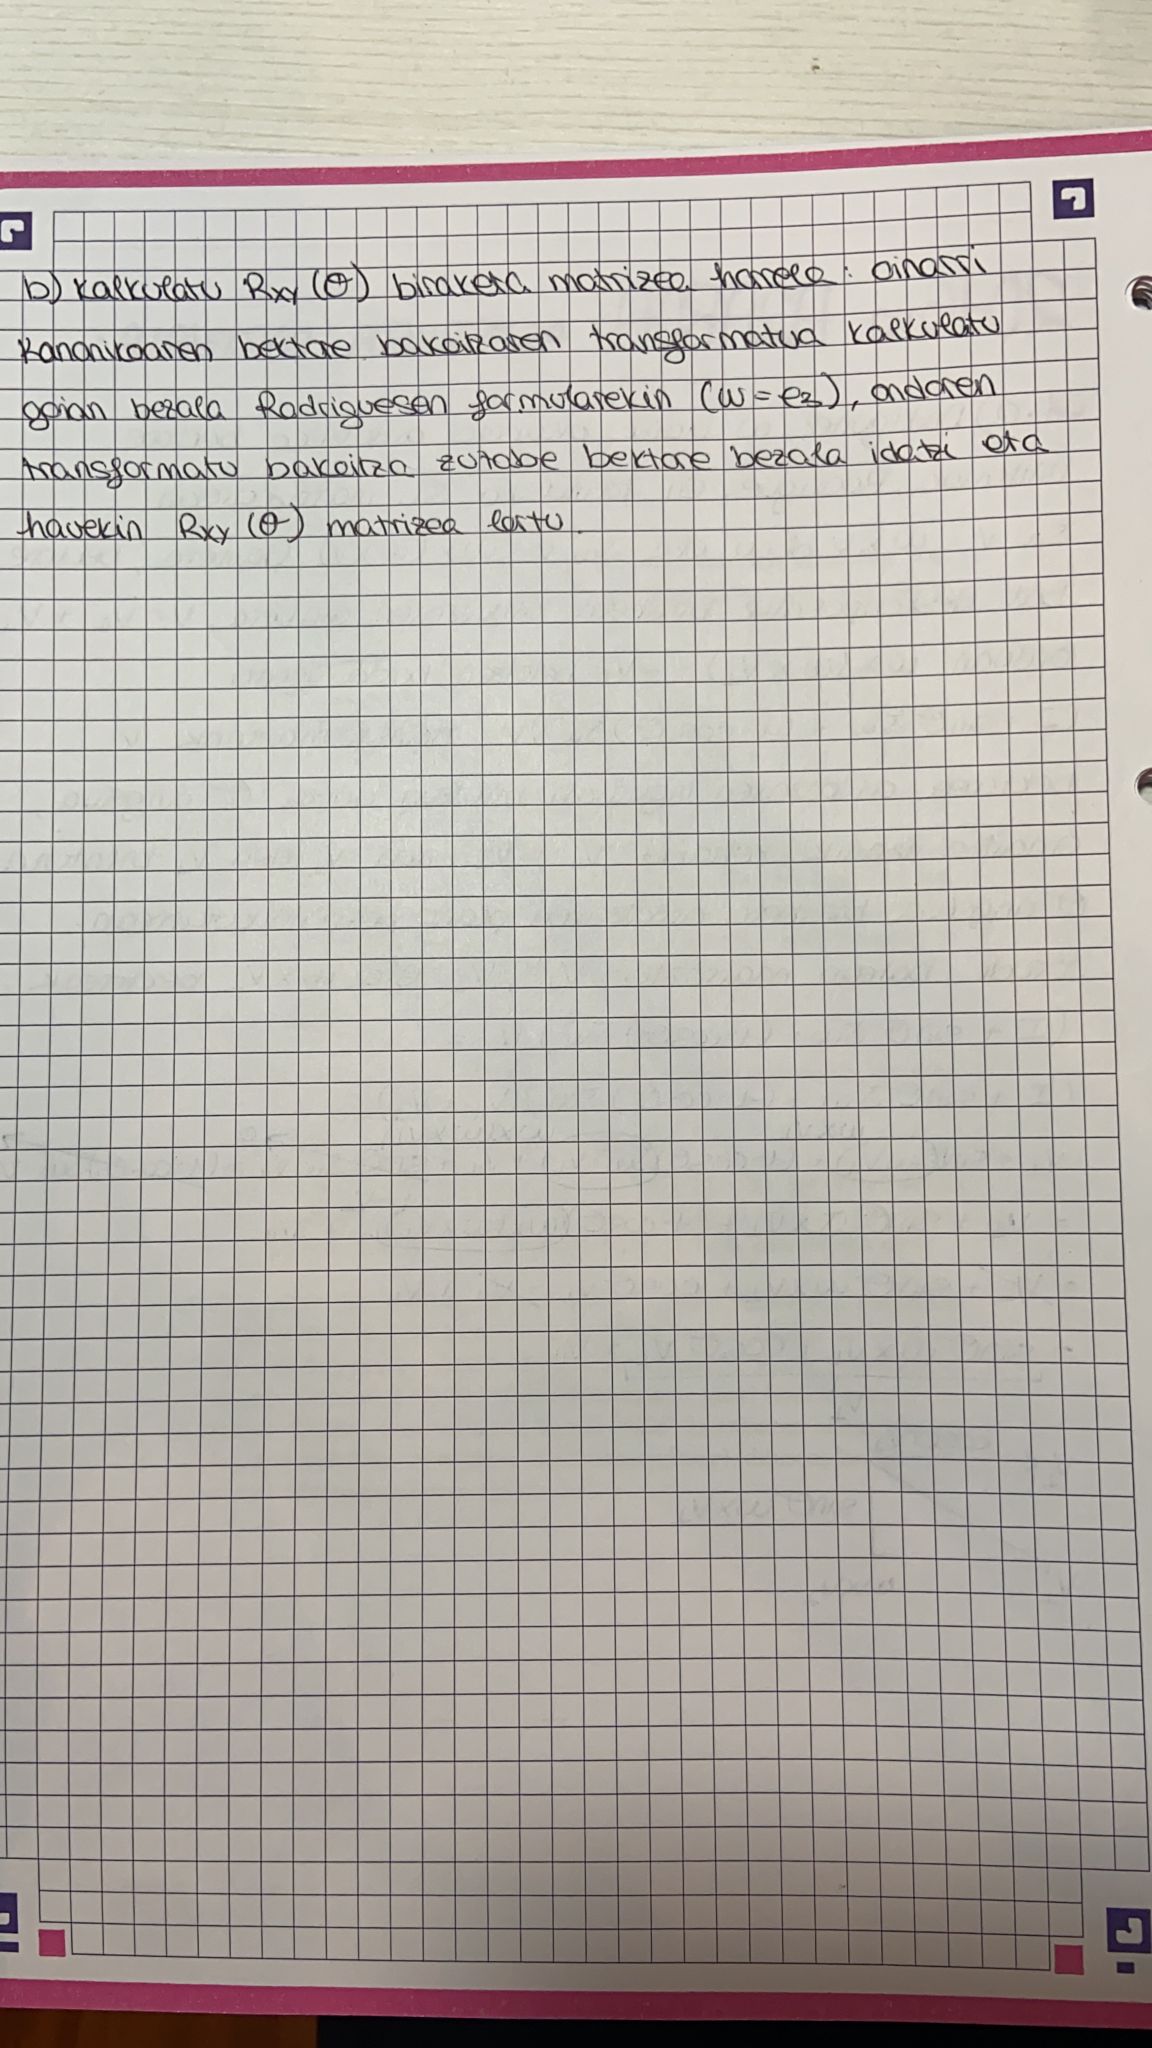 b) Kalkulatu Rxy (θ) biraketa matrizea honela: oinarri
kanonikoaren bektore bakoitzaren transformatua kalkulatu
goian bezala Rodriguesen formularekin (w = e3), ondoren
transformatu bakoitza zutabe bektore bezala idatzi eta
hauekin Rxy (θ) matrizea lortu.